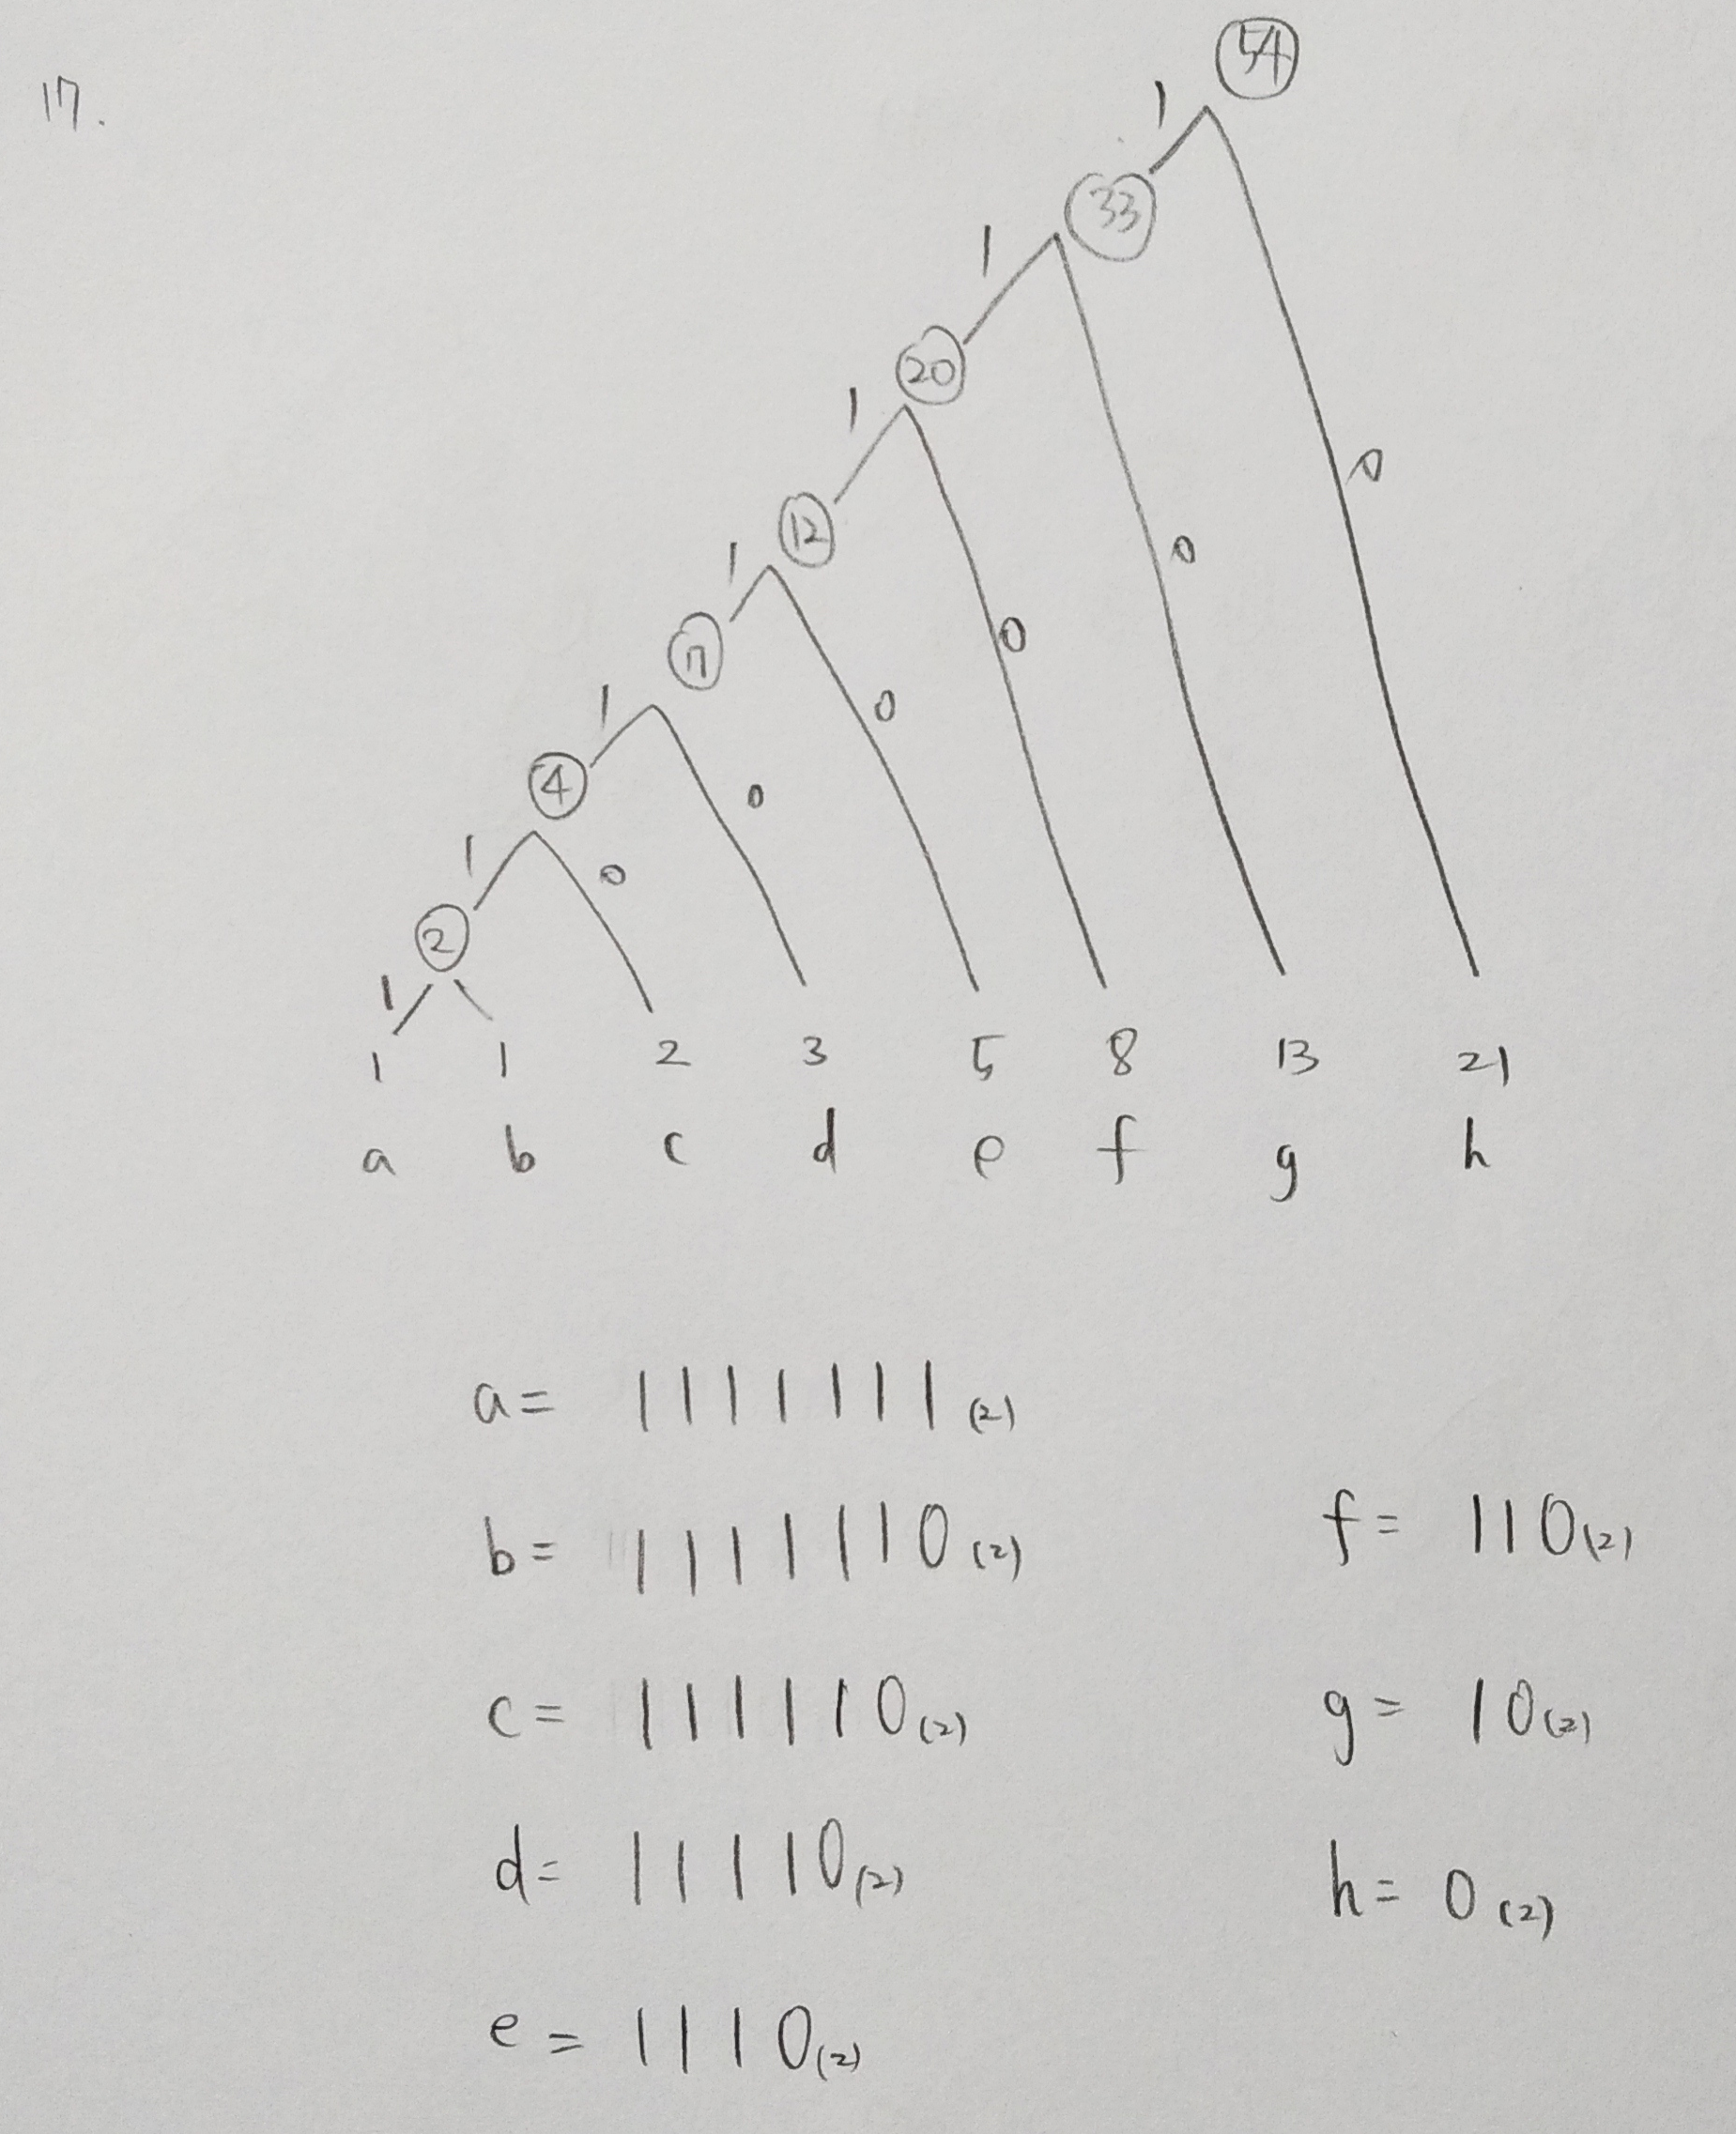 17.
54
1
33
1
0
20
1
0
12
1
0
7
1
0
4
1
0
2
1
0
1
1 1 2 3 5 8 13 21
a b c d e f g h
a = 1111111(2)
b = 1111110(2)
f = 110(2)
c = 111110(2)
g = 10(2)
d = 11110(2)
h = 0(2)
e = 1110(2)